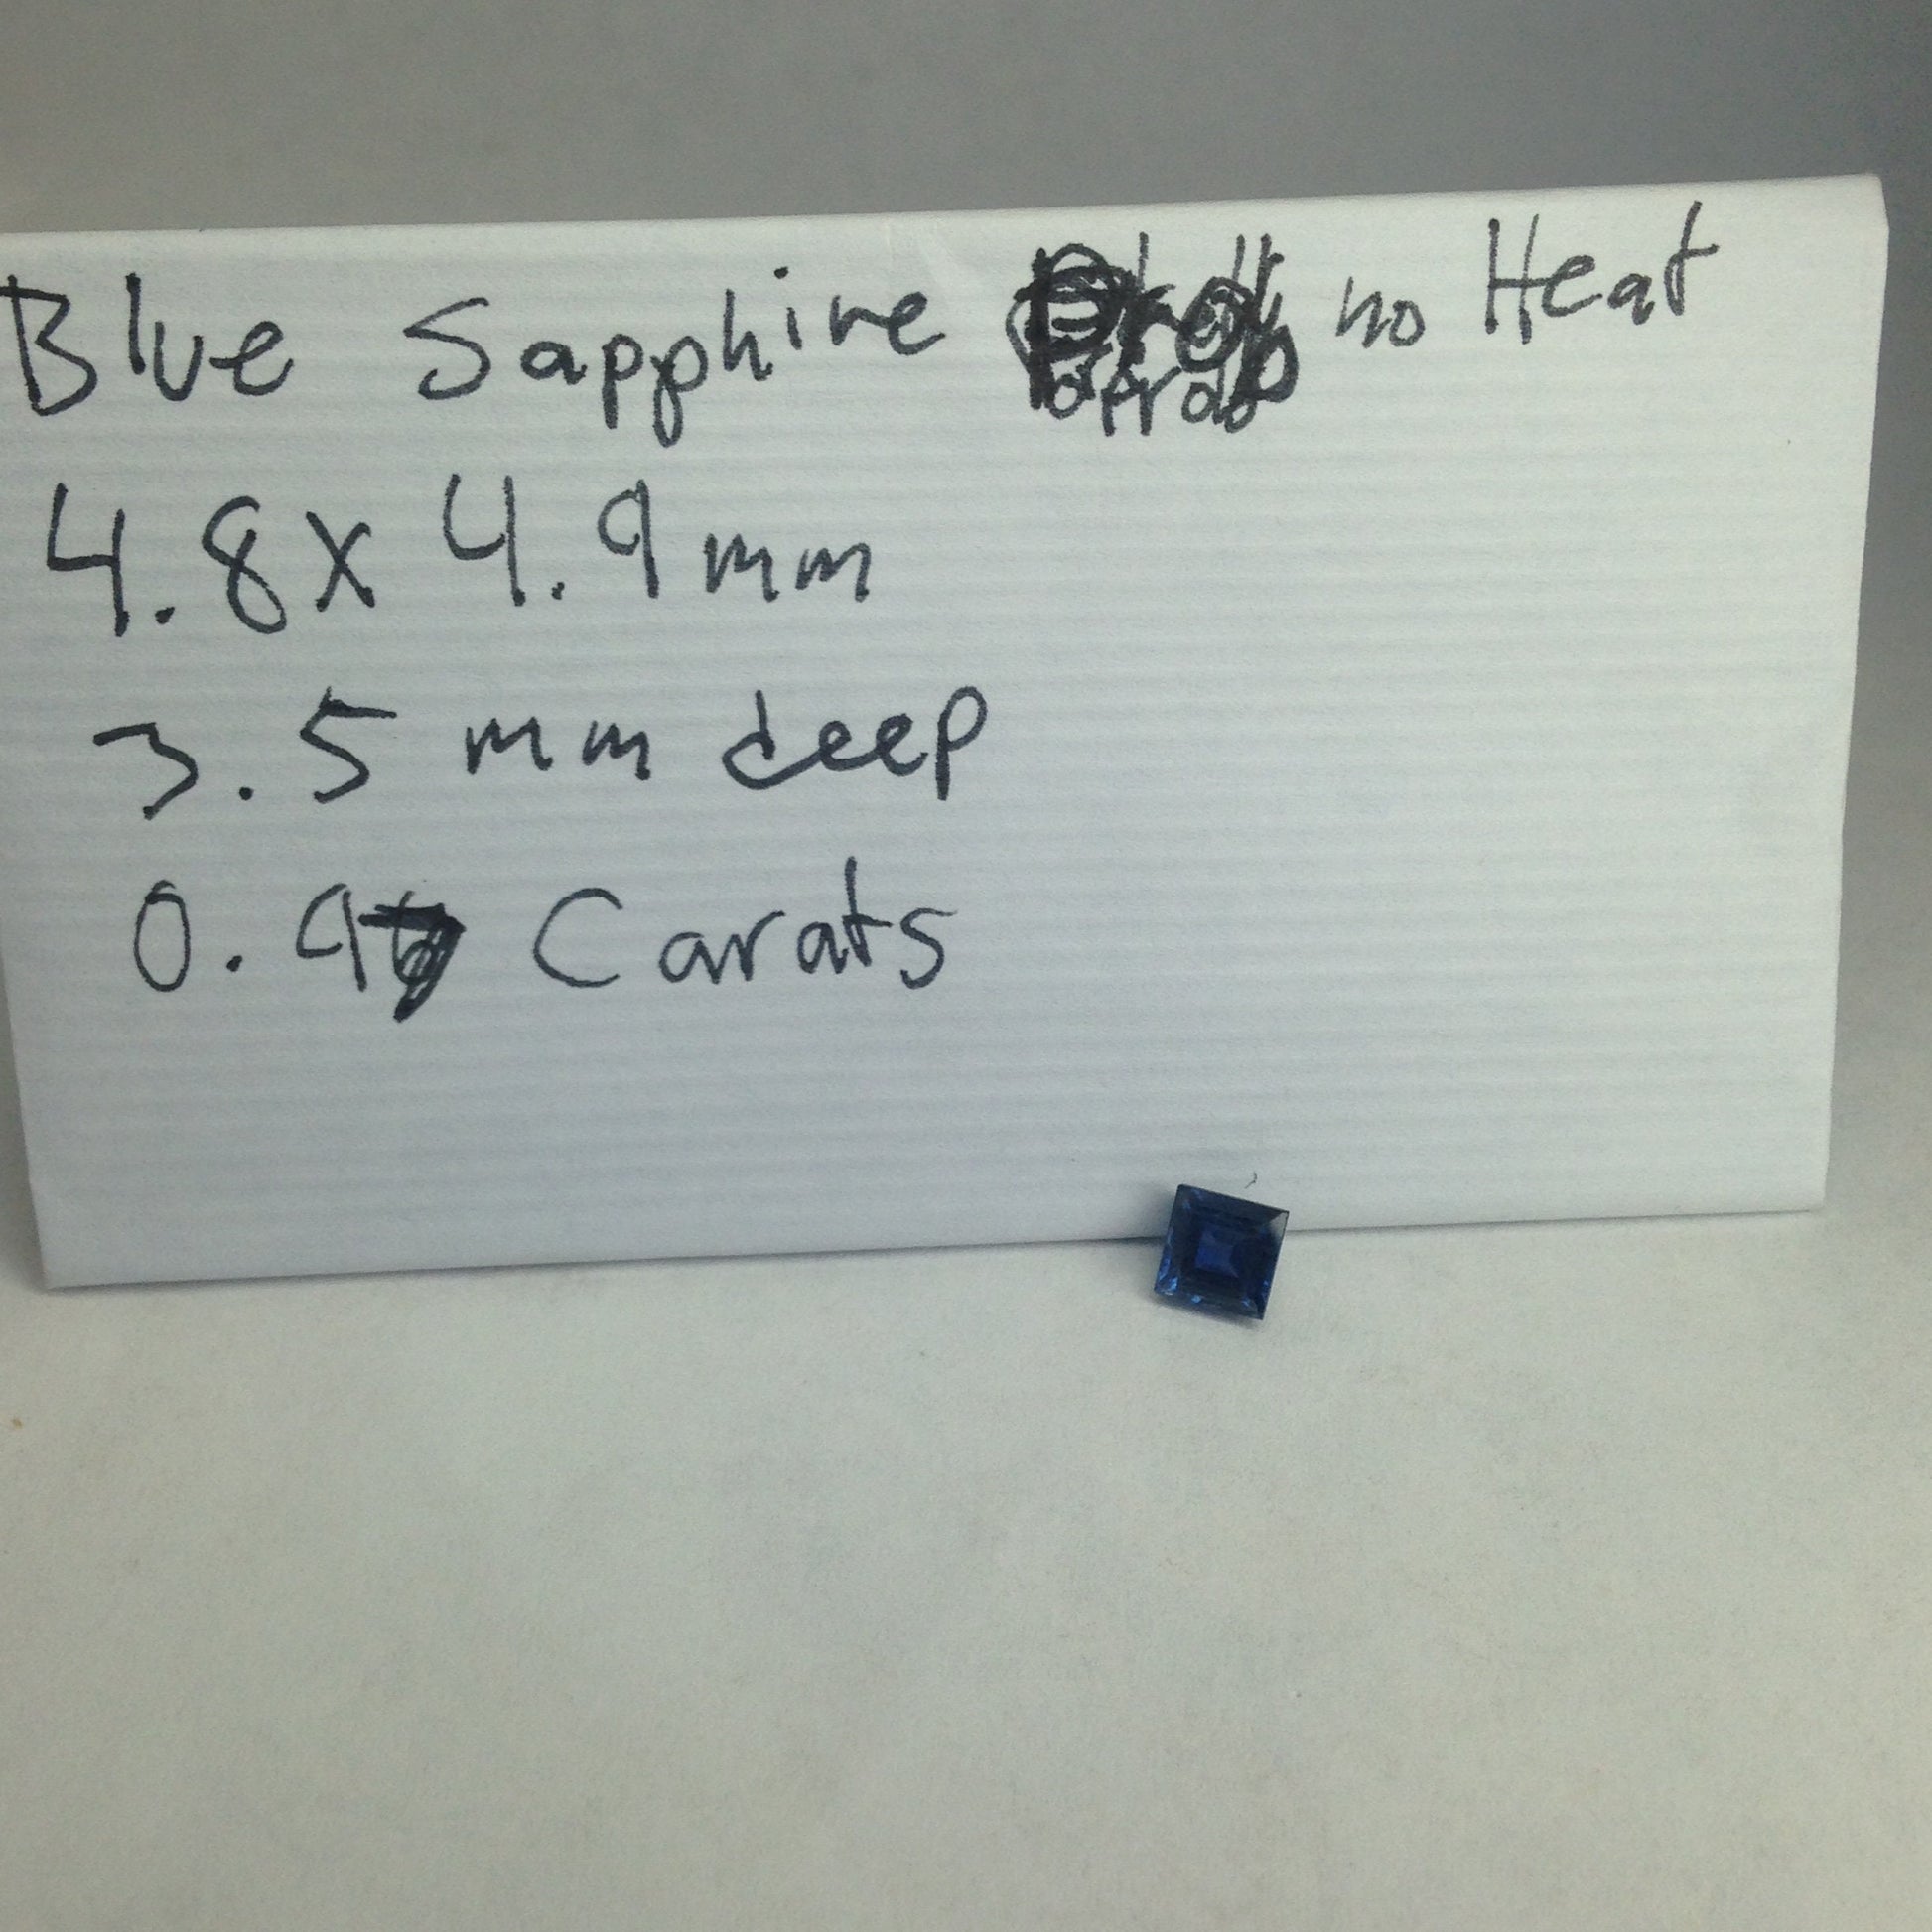 Blue Sapphire no Heat
4.8x4.9mm
3.5 mm deep
Carats